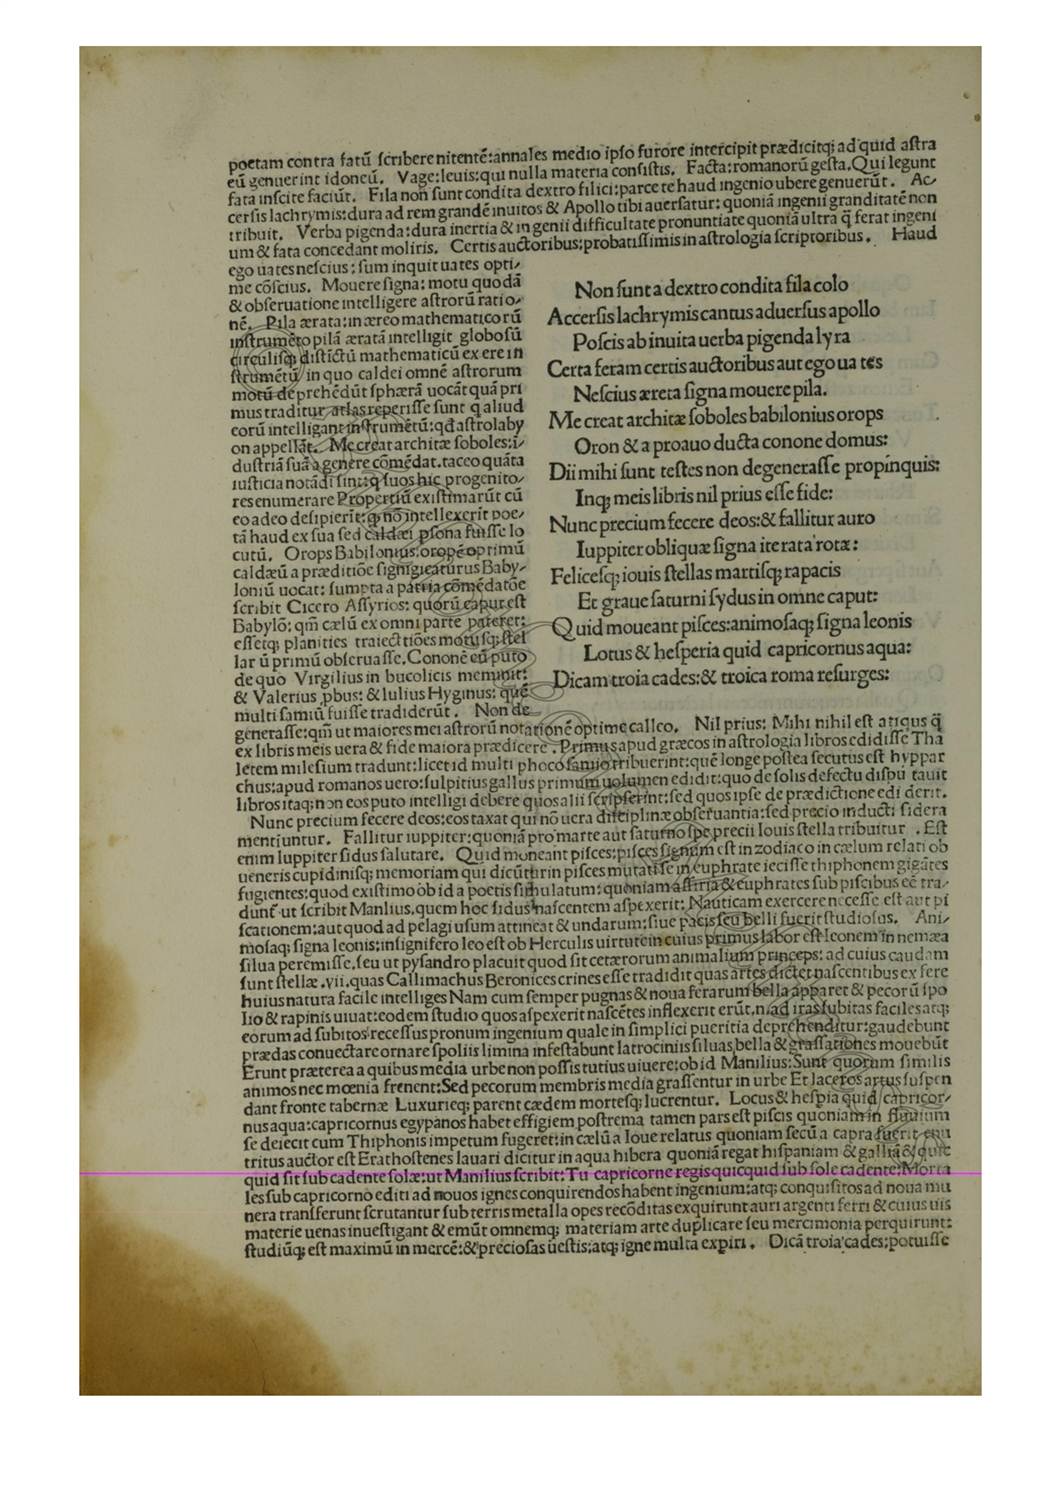 poetam contra fatū ſcribere nitentē:annales medio ipſo furore intercipit prædicitq; ad quid aſtra
eū genuerint idoneū. Vage:leuis:qui nulla materia conſiſtis. Facta:romanorū geſta. Qui legunt
fata inſcite faciūt. Fila non ſunt condita dextro filici:parce te haud ingenio ubere genuerūt. Ac⸗
cerſis lachrymis:dura ad rem grandē inuitos & Apollo tibi auerſatur: quoniā ingenii granditatē non
tribuit. Verba pigenda:dura inertia & ingenii difficultate pronuntiate quoniā ultra q̄ ferat ingeni
um & fata concedant moliris. Certis auctoribus:probatiſſimis in aſtrologia ſcriptoribus. Haud
ego uates neſcius: ſum inquit uates opti⸗
me cōſcius. Mouere ſigna: motu quodā
& obſeruatione intelligere aſtrorū ratio⸗
nē. Pila ærata: in æreo mathematicorū
inſtrumēto pilā æratā intelligit globoſū
circuliſq; diſtīctū mathematicū ex ere in
ſtrumētū in quo caldei omnē aſtrorum
motū deprehēdūt ſphærā uocāt quā pri
mus traditur atlas reperiſſe ſunt q aliud
eorū intelligant inſtrumētū: qđ aſtrolaby
on appellāt. Me creat architæ ſoboles: i⸗
duſtriā ſuā a genere cōmēdat. taceo quāta
iuſticia notādi ſint: q ſuos hic progenito⸗
res enumerare Propertiū exiſtimarūt cū
eo adeo deſipierīt: q nō intellexerīt poe⸗
tā haud ex ſua ſed caldæi pſona fuiſſe lo
cutū. Orops Babilonius: oropē optimū
caldæū a præditiōe ſignigicaturus Baby⸗
loniū uocat: ſumpta a patria cōmēdatōe
ſcribit Cicero Aſſyrios: quorū caput eſt
Babylō: qm̄ cælū ex omni parte pateret:
eſſetq; planities traiectiōes motuſq; ſtel
larū primū obſeruaſſe. Cononē eū puto
de quo Virgilius in bucolicis meminit:
& Valerius pbus: & Iulius Hyginus: quē
multi ſamiū fuiſſe tradiderūt. Non de
Non ſunt a dextro condita fila colo
Accerſis lachrymis cantus aduerſus apollo
Poſcis ab inuita uerba pigenda lyra
Certa feram certis auctoribus aut ego uates
Neſcius æreta ſigna mouere pila.
Me creat architæ ſoboles babilonius orops
Oron & a proauo ducta conone domus:
Dii mihi ſunt teſtes non degeneraſſe propinquis:
Inq; meis libris nil prius eſſe fide:
Nunc precium fecere deos: & fallitur auro
Iuppiter obliquæ ſigna iterata rotæ:
Feliceſq; iouis ſtellas martiſq; rapacis
Et graue ſaturni ſydus in omne caput:
Quid moueant piſces: animoſaq; ſigna leonis
Lotus & heſperia quid capricornus aqua:
Dicam troia cades: & troica roma reſurges:
generaſſe: qm̄ ut maiores mei aſtrorū notationē optime calleo. Nil prius: Mihi nihil eſt atiqus q̄
ex libris meis uera & fide maiora prædicere. Primus apud græcos in aſtrologia libros edidiſſe Tha
letem mileſium tradunt: licet id multi phoco ſamio tribuerint: quē longe poſtea ſecutus eſt hyppar
chus: apud romanos uero: ſulpitius gallus primum uolumen edidit: quo de ſolis defectu diſputauit
libros itaq; non eos puto intelligi debere quos alii ſcripſerint: ſed quos ipſe de prædictione edi derit.
Nunc precium fecere deos: eos taxat qui nō uera diſciplinæ obſeruantia: ſed precio inducti ſidera
mentiuntur. Fallitur iuppiter: quoniā pro marte aut ſaturno ſpe precii Iouis ſtella tribuitur. Eſt
enim Iuppiter ſidus ſalutare. Quid moneant piſces: piſces ſignum eſt in zodiaco in cælum relati ob
ueneris cupidiniſq; memoriam qui dicūtur in piſces mutati ſe in euphrate ieciſſe thiphonem gigātes
fugientes: quod exiſtimo ob id a poetis ſimulatum: quoniam aſſiria & euphrates ſub piſcibus eē tra⸗
dunt ut ſcribit Manlius, quem hoc ſidus naſcentem aſpexerit: Nauticam exercere neceſſe eſt aut pi
ſcationem: aut quod ad pelagi uſum attineat & undarum: ſiue pacis ſeu belli fuerit ſtudioſus. Ani⸗
moſaq; ſigna leonis: inſignifero leo eſt ob Herculis uirtutem cuius primus labor eſt leonem in nemæa
ſilua peremiſſe. ſeu ut pyſandro placuit quod ſit cetærorum animalium princeps: ad cuius caudam
ſunt ſtellæ .vii. quas Callimachus Beronices crines eſſe tradidit quas artes dictet naſcentibus ex fere
huius natura facile intelliges Nam cum ſemper pugnas & noua ferarum bella apparet & pecorū ſpo
lio & rapinis uiuat: eodem ſtudio quos aſpexerit naſcētes inflexerit erūt. n. ad iras ſubitas faciles atq;
eorum ad ſubitos receſſus pronum ingenium quale in ſimplici pueritia deprehenditur: gaudebunt
prædas conuectare ornare ſpoliis limina infeſtabunt latrociniis ſiluas bella & graſſationes mouebūt
Erunt præterea a quibus media urbe non poſſis tutius uiuere: ob id Manilius: Sunt quorum ſimilis
animos nec mœnia frenent: Sed pecorum membris media graſſentur in urbe Et laceros artus ſuſpen
dant fronte tabernæ Luxurieq; parent cædem morteſq; lucrentur. Locus & heſpia quid capricor⸗
nus aqua: capricornus egypanos habet effigiem poſtrema tamen pars eſt piſcis quoniam in fluuium
ſe deiecit cum Thiphonis impetum fugeret: in cælū a Ioue relatus quoniam ſecū a capra fuerit enu
tritus auctor eſt Erathoſtenes lauari dicitur in aqua hibera quoniā regat hiſpaniam & galliā & quic
quid ſit ſub cadente ſolæ: ut Manilius ſcribit: Tu capricorne regis quicquid ſub ſole cadente: Morta
les ſub capricorno editi ad nouos ignes conquirendos habent ingenium: atq; conquiſitos ad noua mu
nera tranſferunt ſcrutantur ſub terris metalla opes recōditas exquirunt auri argenti ferri & cuius uis
materie uenas inueſtigant & emūt omnemq; materiam arte duplicare ſeu mercimonia perquirunt:
ſtudiūq; eſt maximū in mercē: & precioſas ueſtis: atq; igne multa expiri. Dicā troia cades: potuiſſe